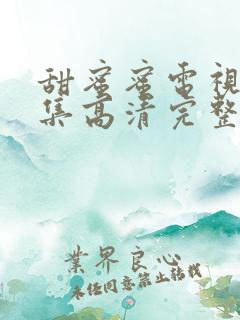 甜蜜蜜電視
集高清完整
業界良心
未任同意禁止轉載